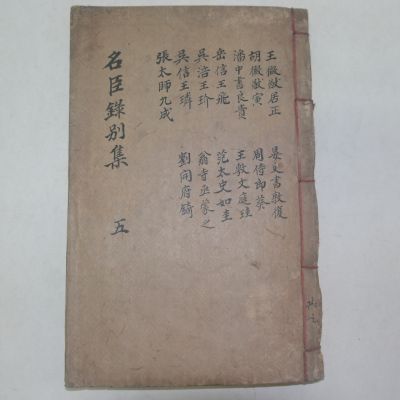 王徽猷居正
晏尚書敦復
胡徽猷寅
周侍郎葵
潘中書良貴
王敷文庭珪
岳信王飛
范太史如圭
吳涪王玠
翁寺丞蒙之
吳信王璘
劉開府錡
張太師九成
名臣錄別集
五